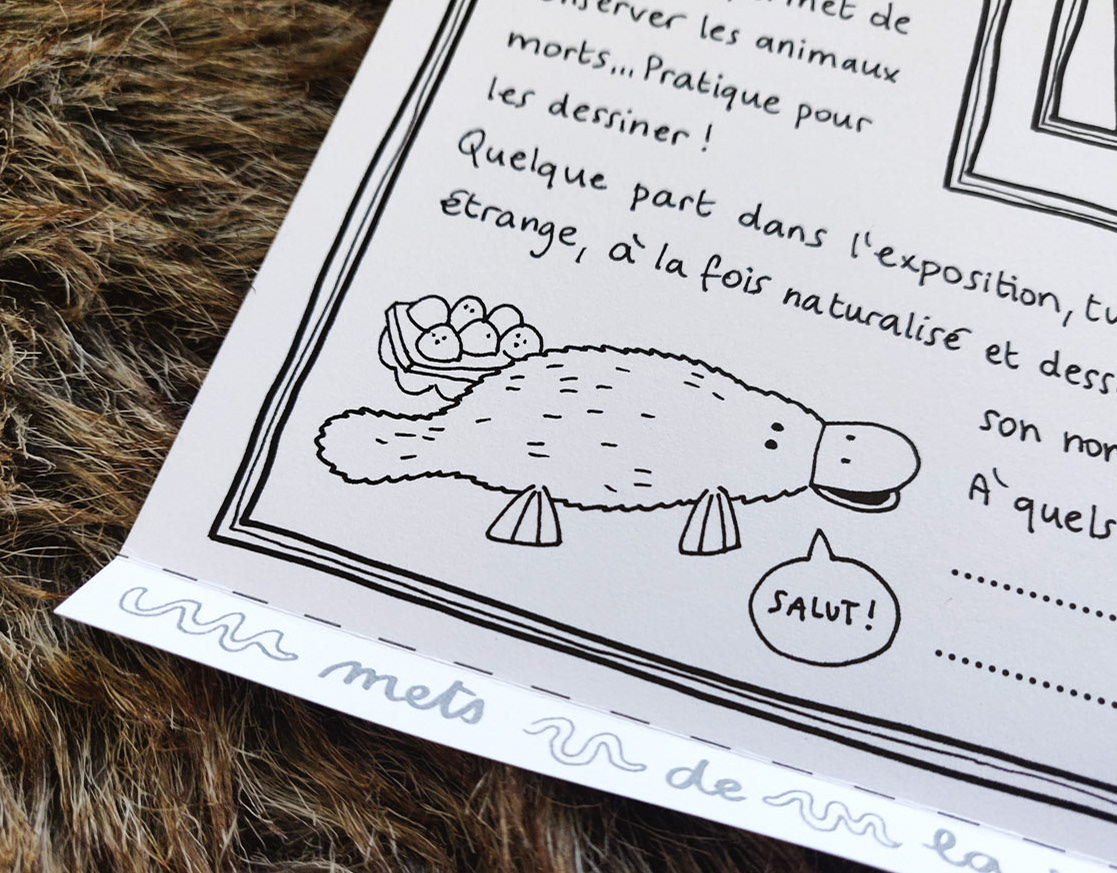 les animaux
morts... Pratique pour
les dessiner !
Quelque part dans l'exposition, tu
étrange, à la fois naturalisé et
son
A quels
SALUT !
mets de la